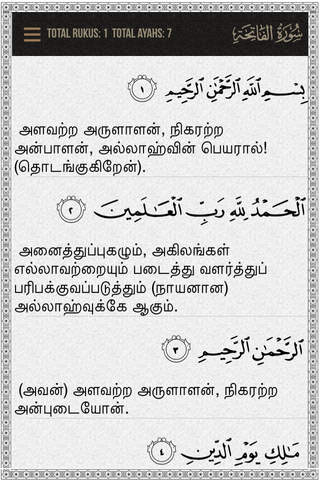 TOTAL RUKUS: 1 TOTAL AYAHS: 7 سُورَةُ الفَاتِحَةِ
بِسْمِ اللَّهِ الرَّحْمَٰنِ الرَّحِيمِ ١
அளவற்ற அருளாளன், நிகரற்ற
அன்பாளன், அல்லாஹ்வின் பெயரால்!
(தொடங்குகிறேன்).
الْحَمْدُ لِلَّهِ رَبِّ الْعَالَمِينَ ٢
அனைத்துப்புகழும், அகிலங்கள்
எல்லாவற்றையும் படைத்து வளர்த்துப்
பரிபக்குவப்படுத்தும் (நாயனான)
அல்லாஹ்வுக்கே ஆகும்.
الرَّحْمَٰنِ الرَّحِيمِ ٣
(அவன்) அளவற்ற அருளாளன், நிகரற்ற
அன்புடையோன்.
مَالِكِ يَوْمِ الدِّينِ ٤